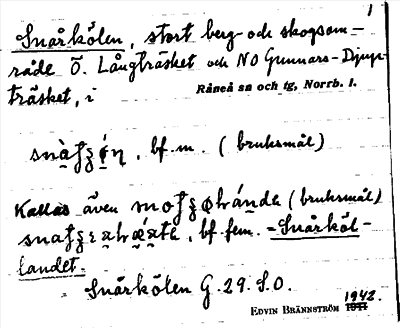 1
Snårkölen, stort berg- och skogsom-
råde Ö. Långträsket och NO Gunnars-Djup-
träsket, i
Råneå sn och tg, Norrb. l.
bf. m. (bruksmål)
Kallas även (bruksmål)
bf. fem. = Snårköl-
landet.
Snårkölen G. 29. S.O.
EDVIN BRÄNNSTRÖM 1942.